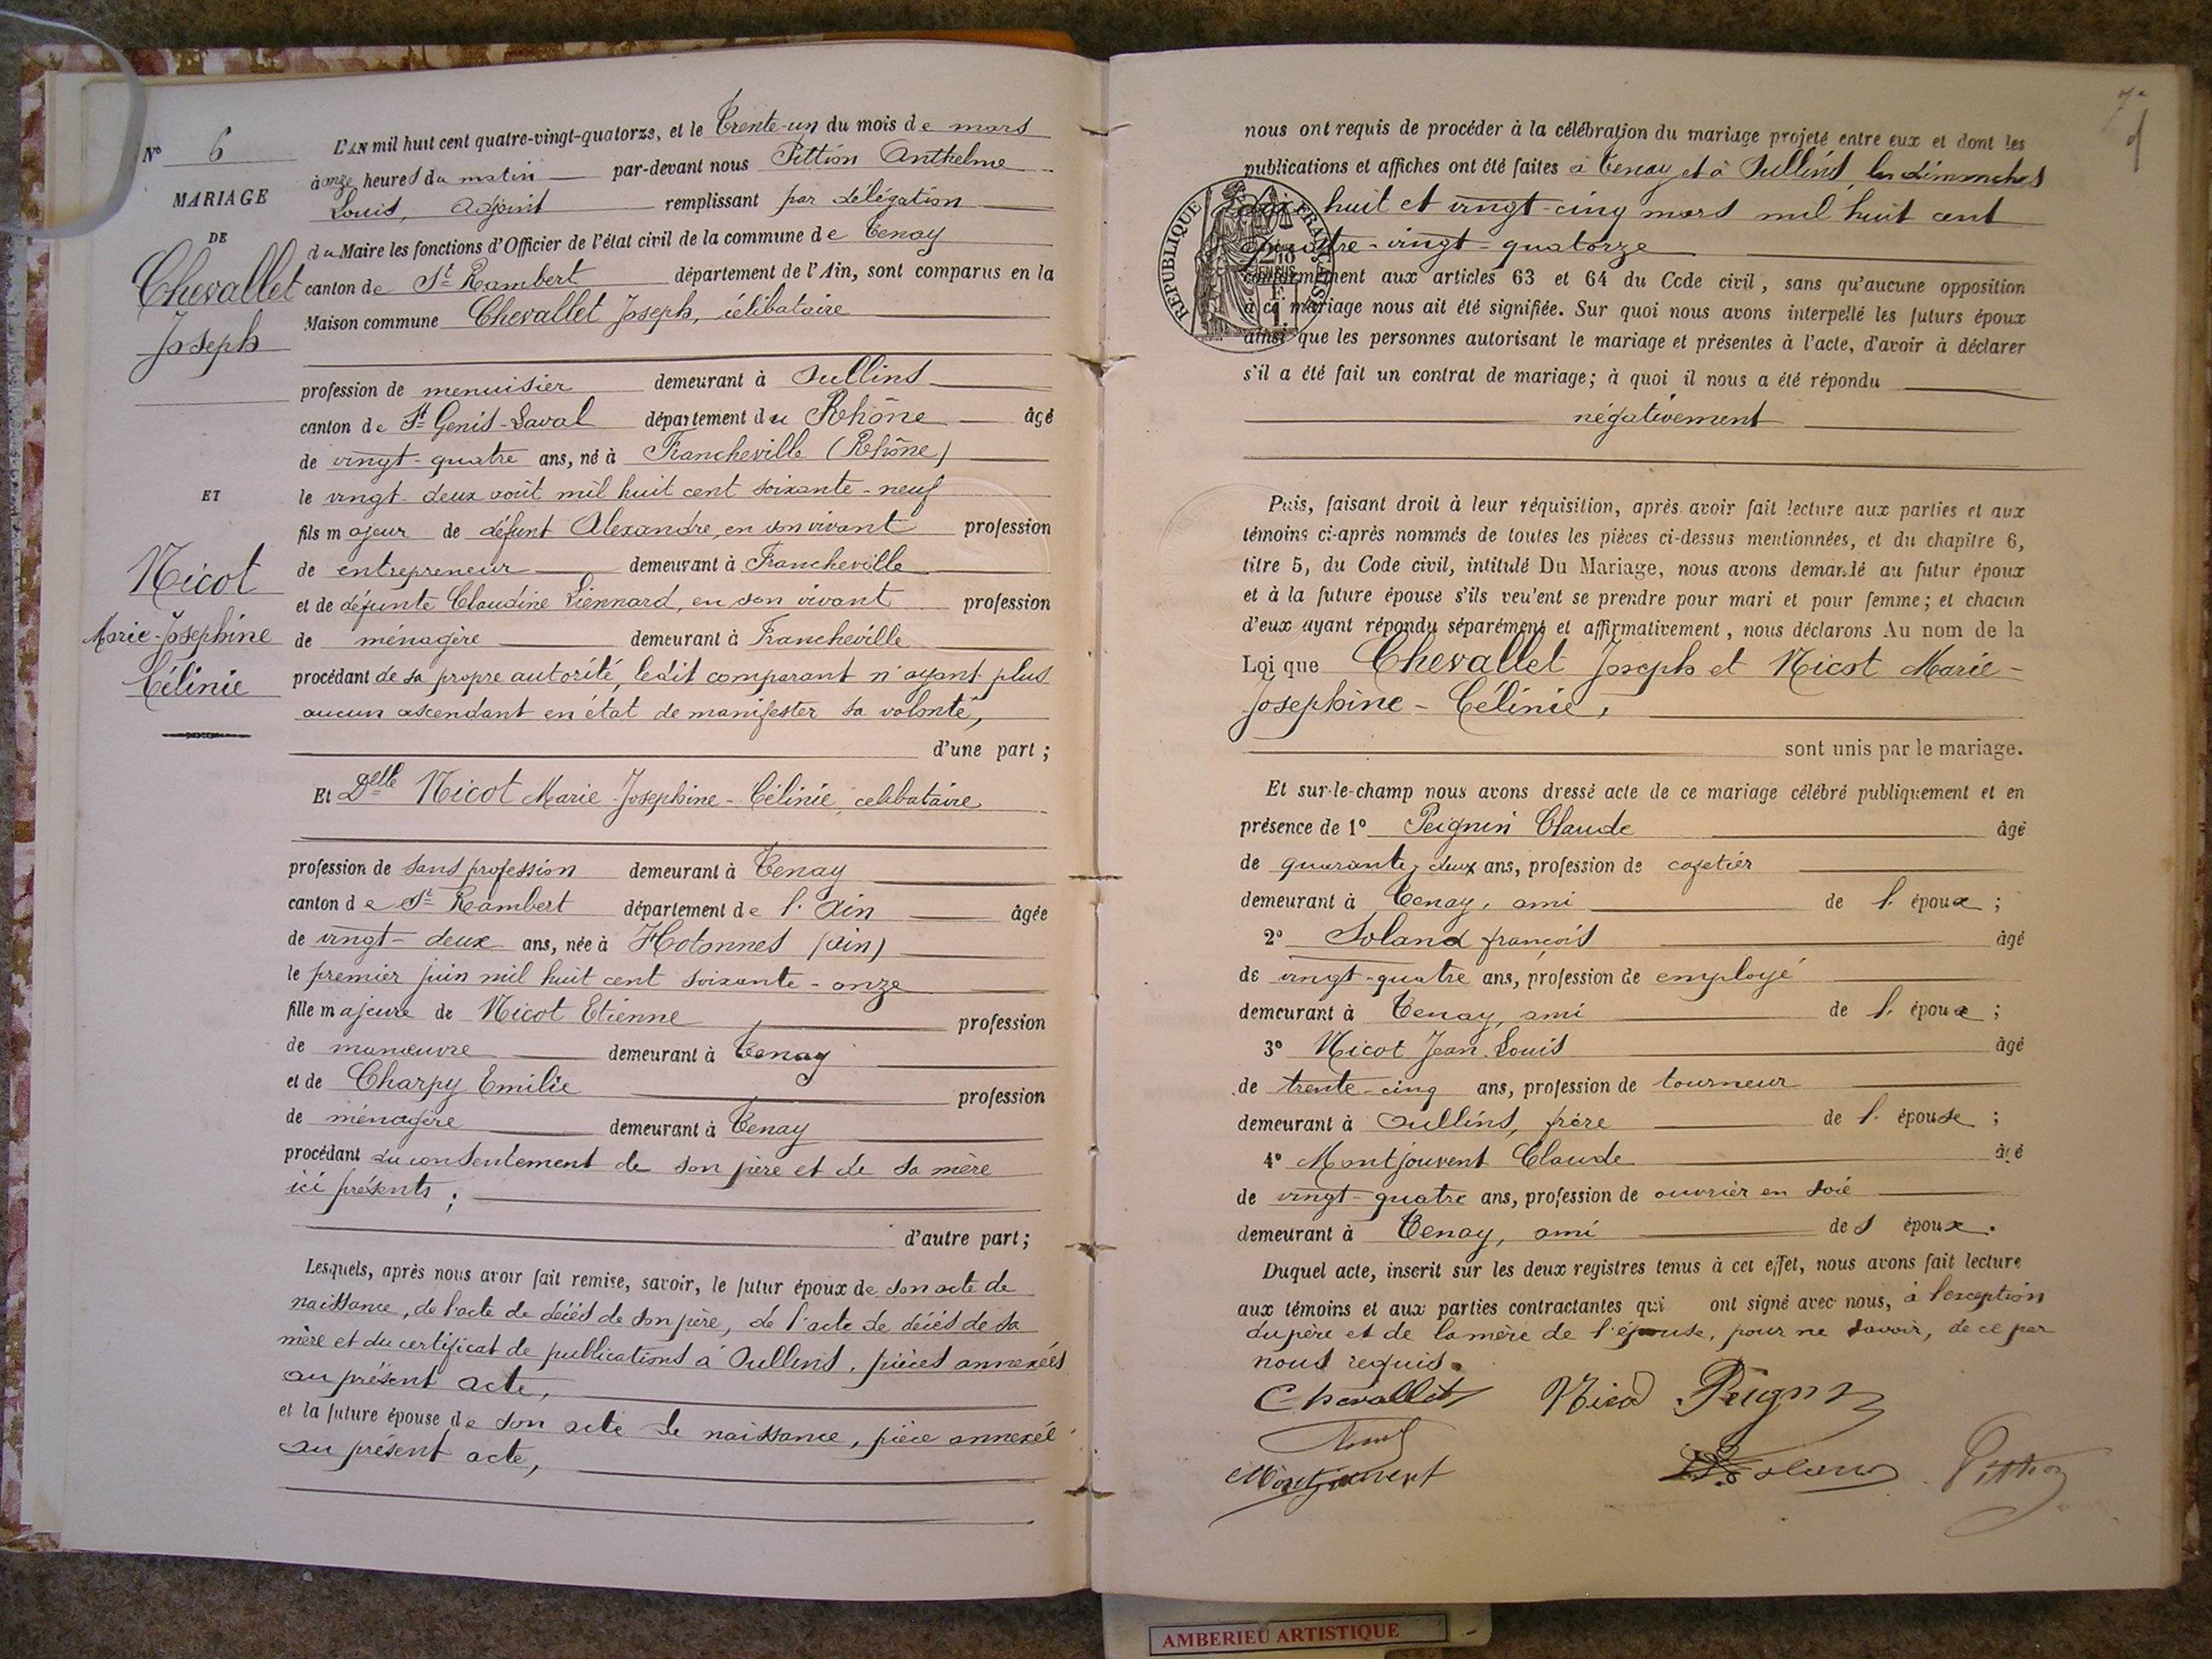 N° 6
MARIAGE
DE
Chevallet
Joseph
ET
Nicot
Marie-Josephine
Célinie
L'AN mil huit cent quatre-vingt-quatorze, et le Trente-un du mois de mars
à onze heures du matin par-devant nous Pittion Anthelme
Louis, Adjoint remplissant par délégation
du Maire les fonctions d'Officier de l'état civil de la commune de Tenay
canton de St Rambert département de l'Ain, sont comparus en la
Maison commune Chevallet Joseph, célibataire
profession de menuisier demeurant à Oullins
canton de St Genis-Laval département du Rhône âgé
de vingt-quatre ans, né à Francheville (Rhône)
le vingt-deux août mil huit cent soixante-neuf
fils majeur de défunt Alexandre, en son vivant profession
de entrepreneur demeurant à Francheville
et de défunte Claudine Liennard, en son vivant profession
de ménagère demeurant à Francheville
procédant de sa propre autorité, ledit comparant n'ayant plus
aucun ascendant en état de manifester sa volonté,
d'une part ;
Et Delle Nicot Marie-Josephine-Célinie, celibataire
profession de sans profession demeurant à Tenay
canton de St Rambert département de l'Ain âgée
de vingt-deux ans, née à Hotonnes (Ain)
le premier juin mil huit cent soixante-onze
fille majeure de Nicot Etienne profession
de manœuvre demeurant à Tenay
et de Charpy Emilie profession
de ménagère demeurant à Tenay
procédant du consentement de son père et de sa mère
ici présents ;
d'autre part ;
Lesquels, après nous avoir fait remise, savoir, le futur époux de son acte de
naissance, de l'acte de décès de son père, de l'acte de décès de sa
mère et du certificat de publications à Oullins, pièces annexées
au présent acte,
et la future épouse de son acte de naissance, pièce annexée
au présent acte,
7e
nous ont requis de procéder à la célébration du mariage projeté entre eux et dont les
publications et affiches ont été faites à Tenay et à Oullins, les dimanches
dix-huit et vingt-cinq mars mil huit cent
quatre-vingt-quatorze
conformément aux articles 63 et 64 du Code civil, sans qu'aucune opposition
à ce mariage nous ait été signifiée. Sur quoi nous avons interpellé les futurs époux
ainsi que les personnes autorisant le mariage et présentes à l'acte, d'avoir à déclarer
s'il a été fait un contrat de mariage; à quoi il nous a été répondu
négativement
RÉPUBLIQUE FRANÇAISE
Puis, faisant droit à leur réquisition, après avoir fait lecture aux parties et aux
témoins ci-après nommés de toutes les pièces ci-dessus mentionnées, et du chapitre 6,
titre 5, du Code civil, intitulé Du Mariage, nous avons demandé au futur époux
et à la future épouse s'ils veulent se prendre pour mari et pour femme; et chacun
d'eux ayant répondu séparément et affirmativement, nous déclarons Au nom de la
Loi que Chevallet Joseph et Nicot Marie-
Josephine-Célinie,
sont unis par le mariage.
Et sur-le-champ nous avons dressé acte de ce mariage célébré publiquement et en
présence de 1° Peignin Claude âgé
de quarante-deux ans, profession de cafetier
demeurant à Tenay, ami de l'époux ;
2° Soland françois âgé
de vingt-quatre ans, profession de employé
demeurant à Tenay, ami de l'époux ;
3° Nicot Jean Louis âgé
de trente-cinq ans, profession de tourneur
demeurant à Oullins, frère de l'épouse ;
4° Montjouvent Claude âgé
de vingt-quatre ans, profession de ouvrier en soie
demeurant à Tenay, ami de l époux.
Duquel acte, inscrit sur les deux registres tenus à cet effet, nous avons fait lecture
aux témoins et aux parties contractantes qui ont signé avec nous, à l'exception
du père et de la mère de l'épouse, pour ne savoir, de ce par
nous requis.
Chevallet Nicot Peignin
Montjouvent Soland Pittion
AMBERIEU ARTISTIQUE